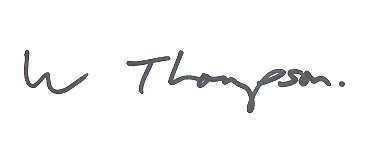 W Thompson.